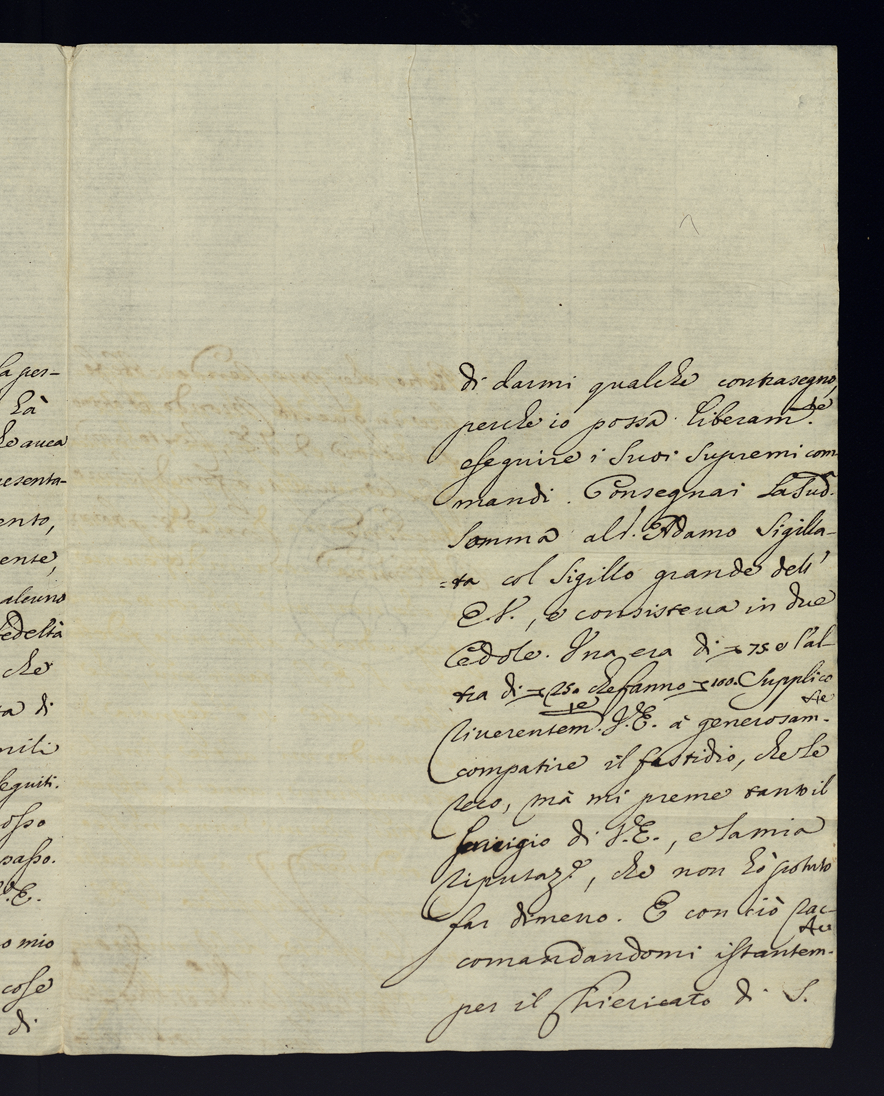 la per-
hà
he avea
resenta-
ento,
ente,
alcuno
fedeltà
che
ta di
mili
seguiti.
posso
passo.
V.E.
o mio
cose
di
di darmi qualche contrasegno,
perche io possa liberam.te
eseguire i suoi supremi com-
mandi. Consegnai la sud.
somma al S. Adamo sigilla-
=ta col sigillo grande dell'
E.V., e consisteva in due
Cedole. Una era di 75 e l'al-
tra di 25. che fanno 100. Supplico
riverentem.te V.E. à generosam.te
compatire il fastidio, che le
reco, mà mi preme tanto il
servigio di V.E., e la mia
riputaz.e, che non hò potuto
far dimeno. E con ciò rac-
comandandomi istantem.te
per il Chiericato di S.